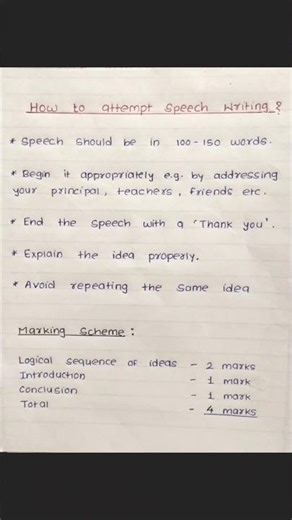 How to attempt Speech Writing?
* Speech should be in 100-150 words.
* Begin it appropriately e.g. by addressing
your principal, teachers, friends etc.
* End the speech with a 'Thank you'.
* Explain the idea properly.
* Avoid repeating the same idea
Marking Scheme :
Logical sequence of ideas - 2 marks
Introduction - 1 mark
Conclusion - 1 mark
Total - 4 marks